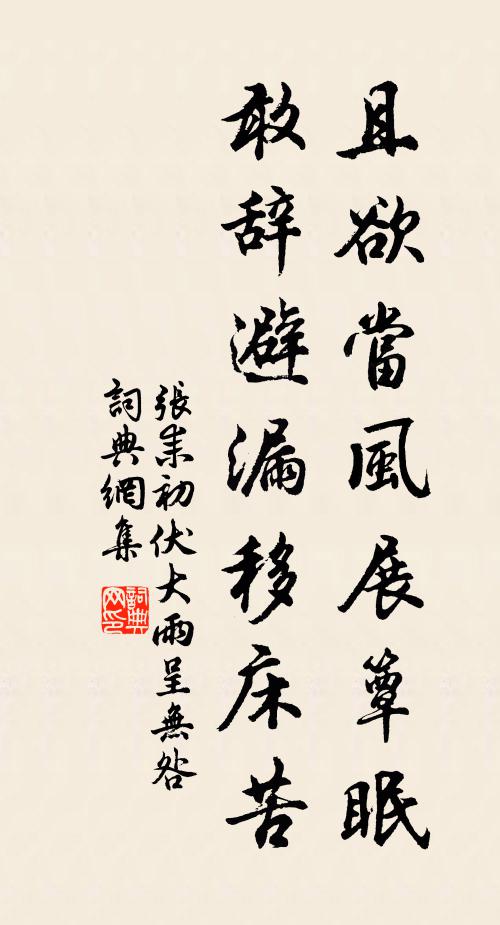 且欲當風展簟眠
敢辞避漏移床苦
張耒初伏大雨呈無咎
詞典網集
詞典
网印